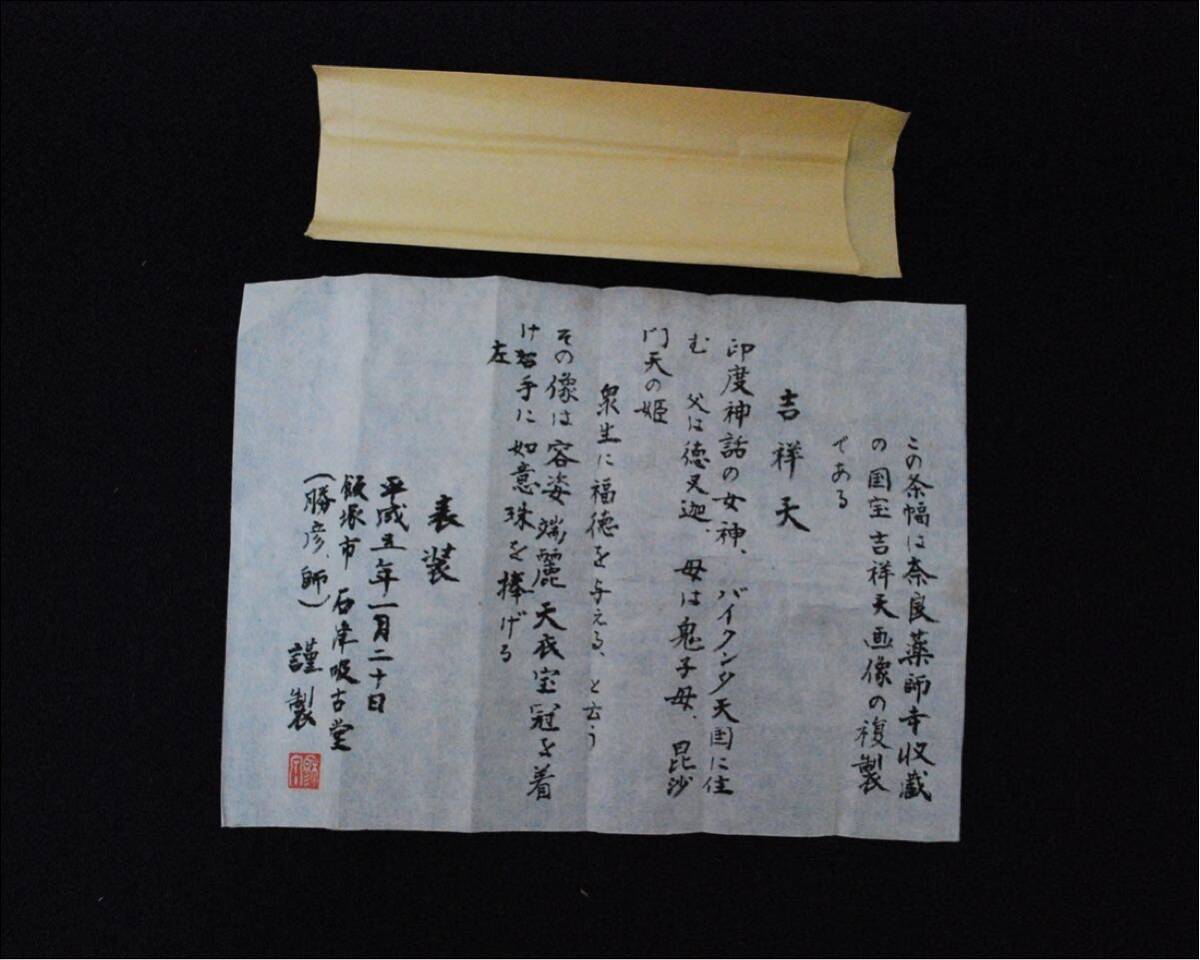 この条幅は奈良薬師寺収蔵
の国宝吉祥天画像の複製
である
吉祥天
印度神話の女神、バイクンタ天国に住
む 父は徳叉迦、母は鬼子母、毘沙
門天の姫
衆生に福徳を与える、と云う
その像は容姿端麗天衣宝冠を着
け左手に如意珠を捧げる
表装
平成五年一月二十日
飯塚市 石津吸古堂
(勝彦、師) 謹製